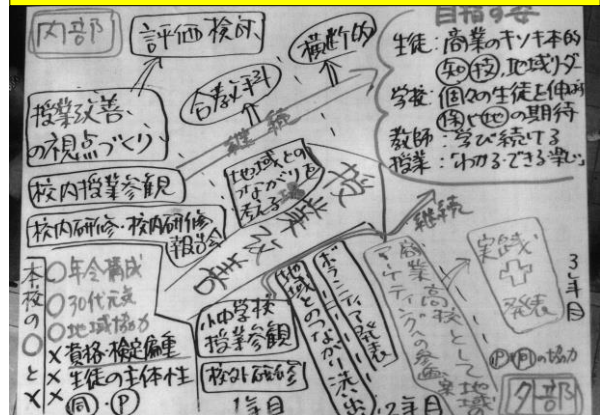 内部
評価検討
横断的
合教科
授業改善
の視点づくり
継続
校内授業参観
校内研修・校内研修
報告会
地域との
つながりを
考える場
授業改善
目指す姿
生徒：商業のキソキ本的
知技、地域リーダー
学校：個々の生徒を伸ばす
保と地の期待
教師：学び続ける
授業：「わかる・できる・楽しい」
継続
本校の○と×
○年令構成
○30代元気
○地域協力
×資格・検定偏重
×生徒の主体性
×同・P
小中学校
授業参観
校外研修
1年目
地域とのつながり洗い出し
ボランティア発表
2年目
商業高校として地域
への参画
実践
＋
発表
3年目
P・同の協力
外部